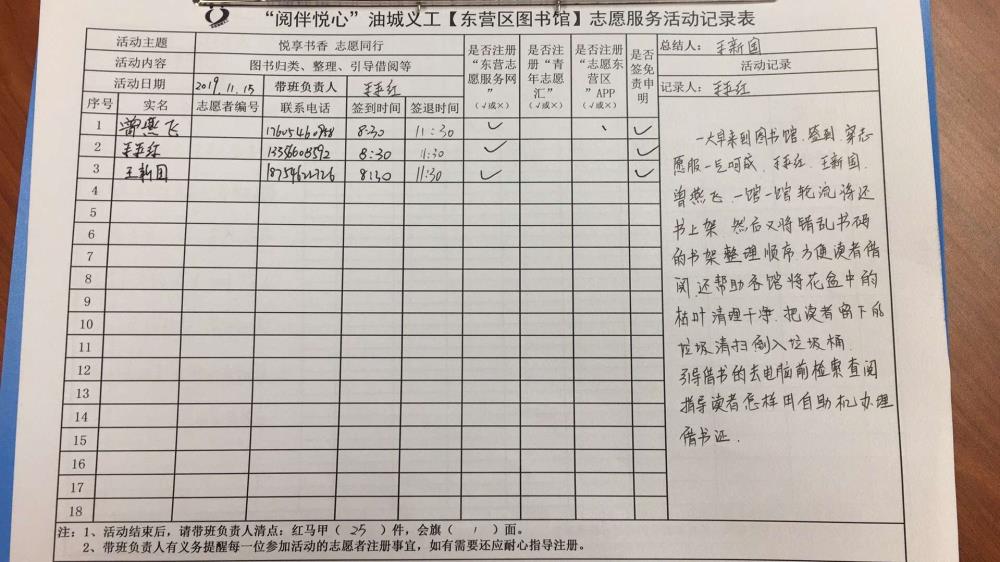 “阅伴悦心”油城义工【东营区图书馆】志愿服务活动记录表
活动主题 悦享书香 志愿同行
活动内容 图书归类、整理、引导借阅等
活动日期 2019.11.15 带班负责人
序号 实名 志愿者编号 联系电话 签到时间 签退时间
是否注册“东营志愿服务网”（√或×）
是否注册“青年志愿汇”（√或×）
是否注册“志愿东营区”APP（√或×）
是否签免责申明
总结人：王新国
活动记录
记录人：
1 曾燕飞 8:30 11:30 ✓ ✓
2 13356608592 8:30 11:30 ✓ ✓
3 王新国 8:30 11:30 ✓ ✓
4
5
6
7
8
9
10
11
12
13
14
15
16
17
18
一大早来到图书馆.签到.穿志
愿服一气呵成. 王新国.
曾燕飞.一馆一馆轮流将还
书上架.然后又将错乱书码
的书架整理顺序方便读者借
阅.还帮助各馆将花盆中的
枯叶清理干净.把读者留下的
垃圾清扫倒入垃圾桶.
引导借书的去电脑前检索查阅
指导读者怎样用自助机办理
借书证.
注：1、活动结束后，请带班负责人清点：红马甲（ 25 ）件，会旗（ 1 ）面。
2、带班负责人有义务提醒每一位参加活动的志愿者注册事宜，如有需要还应耐心指导注册。